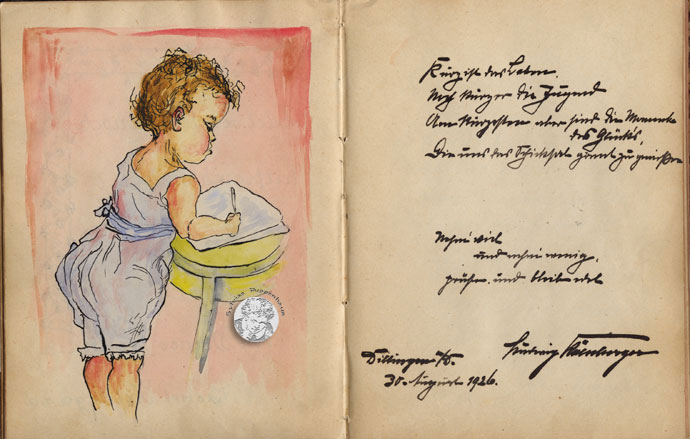 Kurz ist das Leben.
Noch kürzer die Jugend
Am Kürzesten aber sind die Momente
des Glücks,
Die uns das Schicksal gönnt zu genießen
viel
und wenig,
prüfe und
Dillingen a/D. Ludwig
30. August 1926.